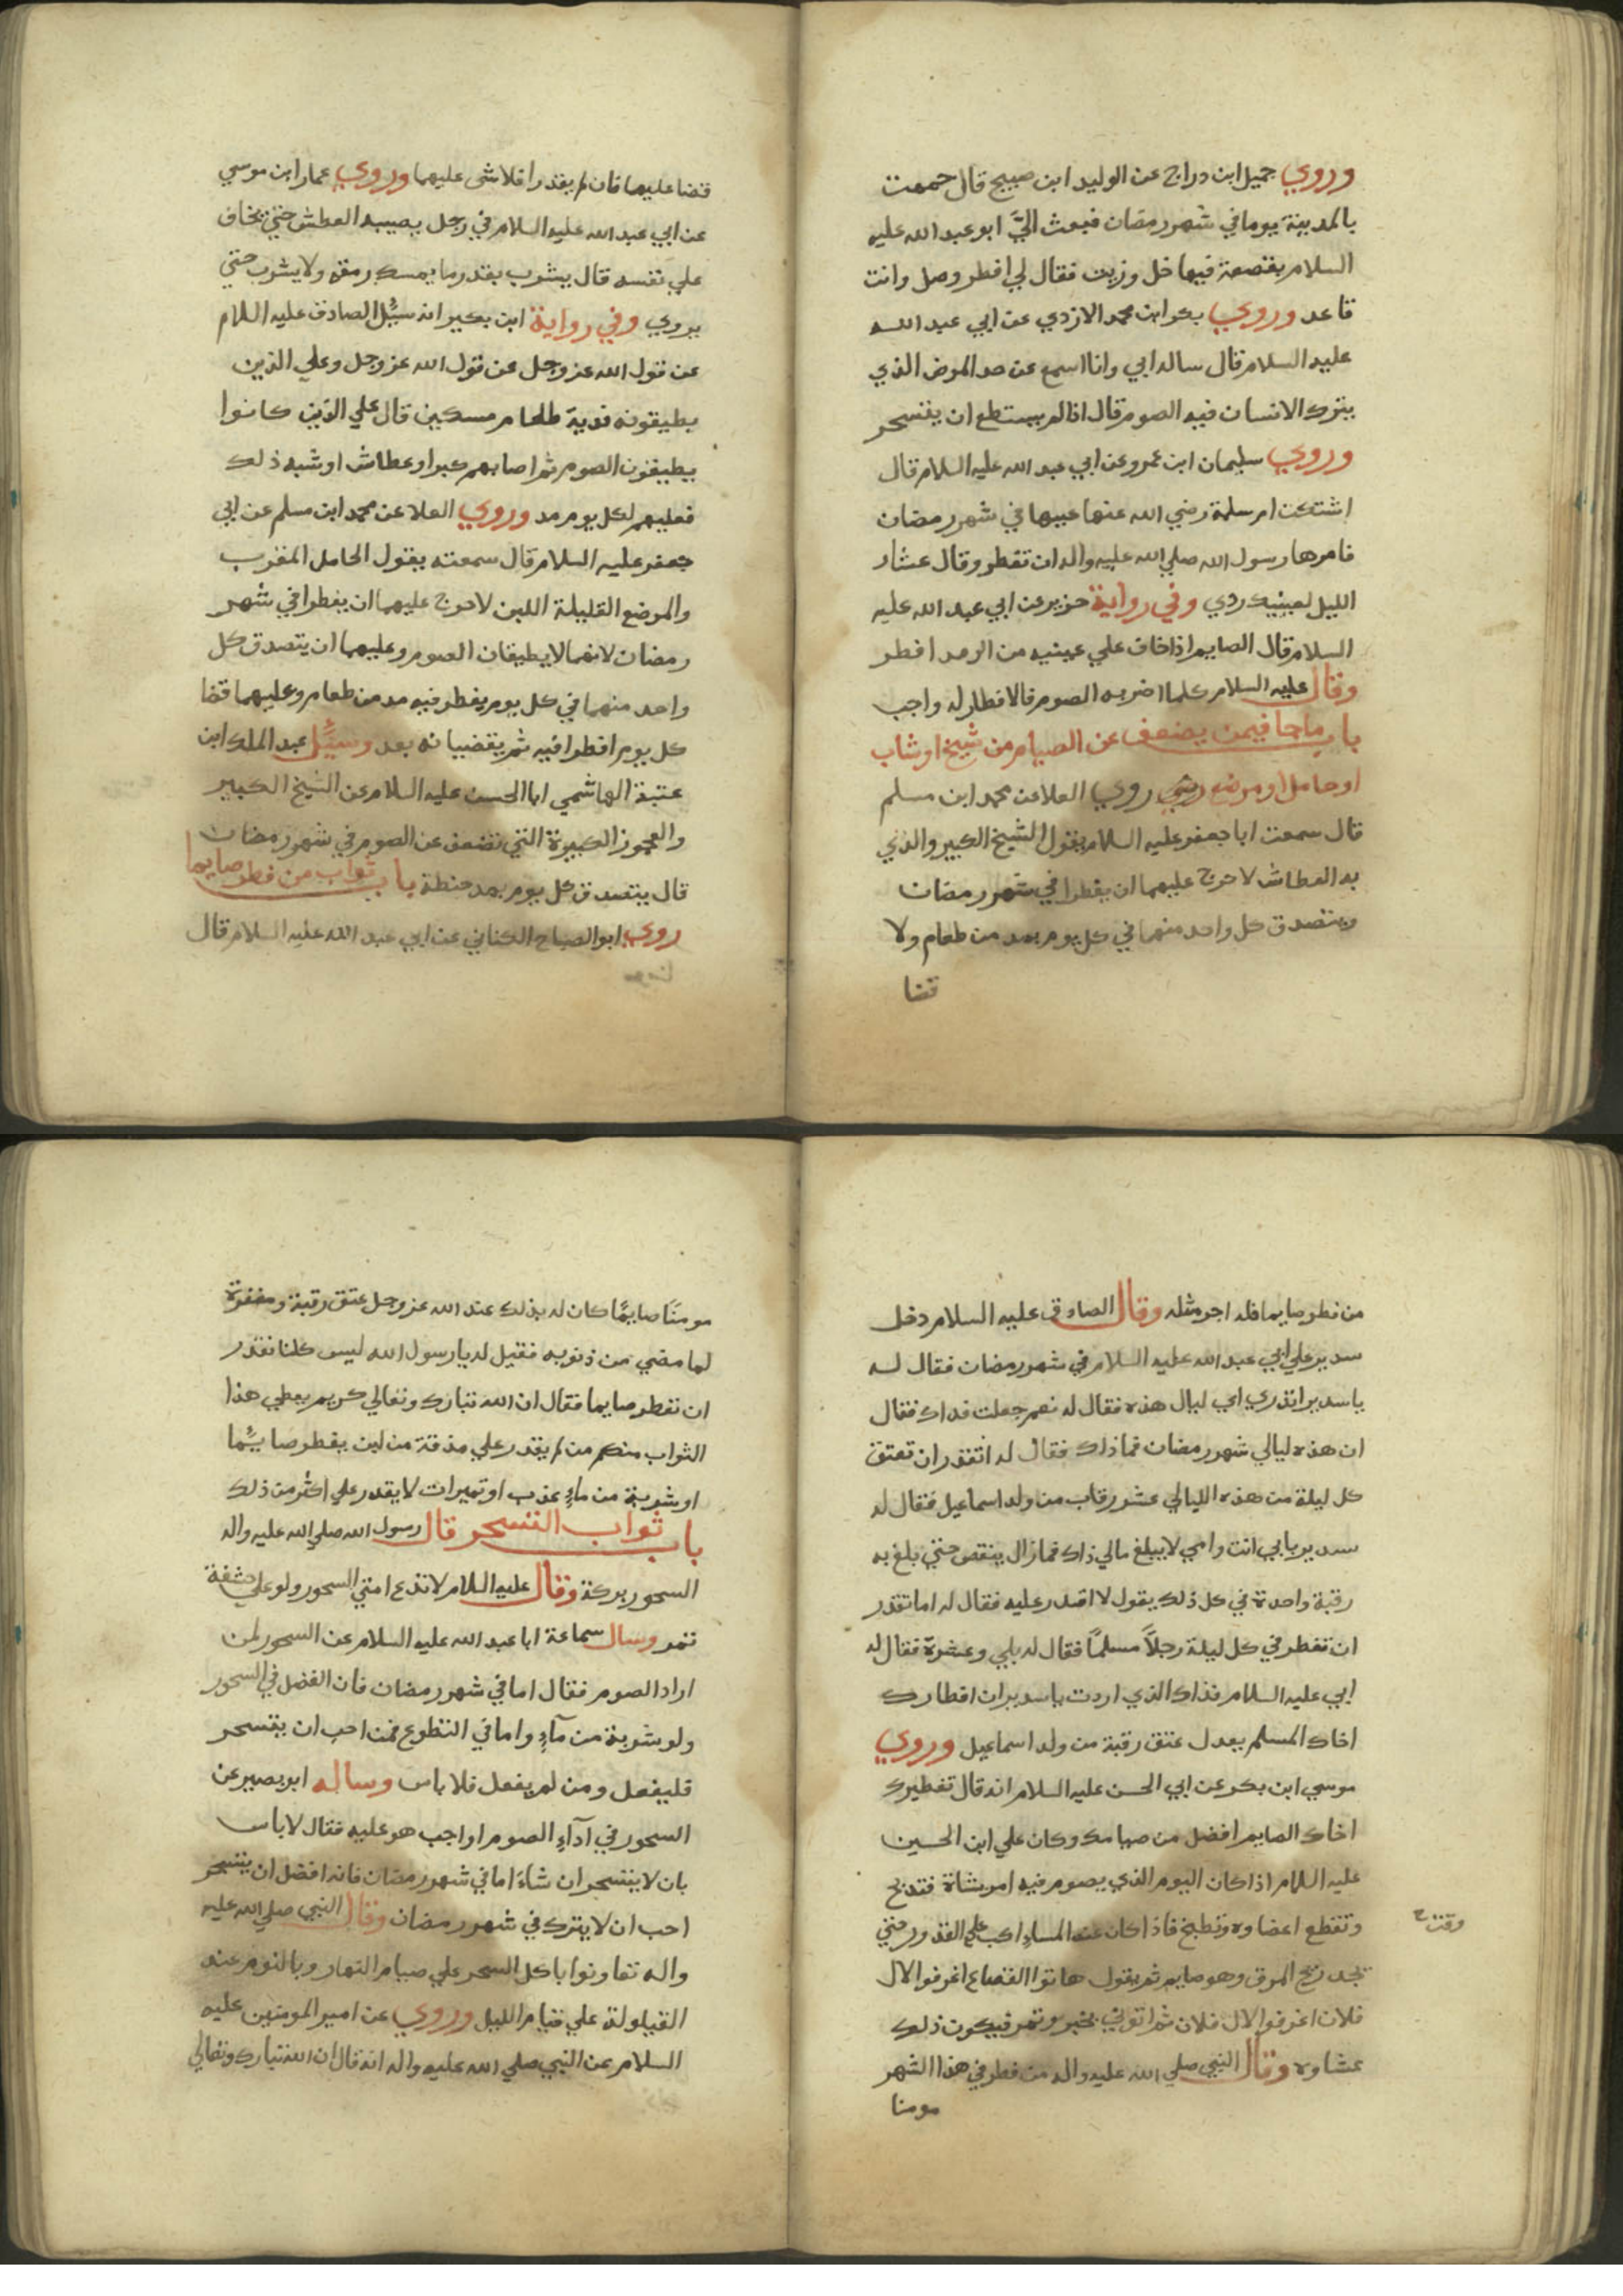 وروي جميل ابن دراج عن الوليد ابن صبيح قال حممت
بالمدينة يوما في شهر رمضان فبعث اليّ ابو عبد الله عليه
السلام بقصعة فيها خل وزيت فقال لي افطر وصل وانت
قاعد وروي بكر ابن محمد الازدي عن ابي عبد الله
عليه السلام قال ساله ابي وانا اسمع عن حد المرض الذي
يترك الانسان فيه الصوم قال اذا لم يستطع ان يتسحر
وروي سليمان ابن عمرو عن ابي عبد الله عليه السلام قال
اشتكت ام سلمة رضي الله عنها عينها في شهر رمضان
فامرها رسول الله صلي الله عليه واله ان تفطر وقال عشاء
الليل لعينيك ردي وفي رواية حريز عن ابي عبد الله عليه
السلام قال الصايم اذا خاف علي عينيه من الرمد افطر
وقال عليه السلام كلما اضر به الصوم فالافطار له واجب
باب ماجا فيمن يضعف عن الصيام من شيخ او شاب
او حامل او مرضع روي العلا عن محمد ابن مسلم
قال سمعت ابا جعفر عليه السلام يقول الشيخ الكبير والذي
به العطاش لا حرج عليهما ان يفطرا في شهر رمضان
ويتصدق كل واحد منهما في كل يوم بمد من طعام ولا
قضا
قضا عليهما فان لم يقدرا فلا شي عليهما وروي عمار ابن موسي
عن ابي عبد الله عليه السلام في رجل يصيبه العطش حتي يخاف
علي نفسه قال يشرب بقدر ما يمسك رمقه ولا يشرب حتي
يروي وفي رواية ابن بكير انه سئل الصادق عليه السلام
عن قول الله عز وجل عن قول الله عز وجل وعلي الذين
يطيقونه فدية طعام مسكين قال علي الذين كانوا
يطيقون الصوم ثم اصابهم كبر او عطاش او شبه ذلك
فعليهم لكل يوم مد وروي العلا عن محمد ابن مسلم عن ابي
جعفر عليه السلام قال سمعته يقول الحامل المقرب
والمرضع القليلة اللبن لا حرج عليهما ان يفطرا في شهر
رمضان لانهما لا يطيقان الصوم وعليهما ان يتصدق كل
واحد منهما في كل يوم يفطر فيه مد من طعام وعليهما قضا
كل يوم افطرا فيه ثم يقضيانه بعد وسئل عبد الملك ابن
عتبة الهاشمي ابا الحسن عليه السلام عن الشيخ الكبير
والعجوز الكبيرة التي تضعف عن الصوم في شهر رمضان
قال يتصدق كل يوم بمد حنطة باب ثواب من فطر صايما
روي ابو الصباح الكناني عن ابي عبد الله عليه السلام قال
من فطر صايما فله اجر مثله وقال الصادق عليه السلام دخل
سدير علي ابي عبد الله عليه السلام في شهر رمضان فقال له
ياسدير اتدري اي ليال هذه فقال له نعم جعلت فداك فقال
ان هذه ليالي شهر رمضان فما ذاك فقال له اتقدر ان تعتق
كل ليلة من هذه الليالي عشر رقاب من ولد اسماعيل فقال له
سدير بابي انت وامي لا يبلغ مالي ذاك فما زال ينقص حتي بلغ به
رقبة واحدة في كل ذلك يقول لا اقدر عليه فقال له اما تقدر
ان تفطر في كل ليلة رجلاً مسلماً فقال له بلي وعشرة فقال له
ابي عليه السلام فذاك الذي اردت ياسدير ان افطارك
اخاك المسلم يعدل عتق رقبة من ولد اسماعيل وروي
موسي ابن بكر عن ابي الحسن عليه السلام انه قال تفطيرك
اخاك الصايم افضل من صيامك وكان علي ابن الحسين
عليه السلام اذا كان اليوم الذي يصوم فيه امر بشاة فتذبح
وتقطع اعضاوه وتطبخ فاذا كان عند المساء اكب علي القدور حتي
يجد ريح المرق وهو صايم ثم يقول هاتوا القصاع اغرفوا لال
فلان اغرفوا لال فلان ثم اتوني بخبز وتمر فيكون ذلك
عشاوه وقال النبي صلي الله عليه واله من فطر في هذا الشهر
مومنا
مومنًا صايمًا كان له بذلك عند الله عز وجل عتق رقبة ومغفرة
لما مضي من ذنوبه فقيل له يا رسول الله ليس كلنا نقدر
ان نفطر صايما فقال ان الله تبارك وتعالي كريم يعطي هذا
الثواب منكم من لم يقدر علي مذقة من لبن يفطر صائما
او شربة من ماءٍ عذب او تميرات لا يقدر علي اكثر من ذلك
باب ثواب التسحر قال رسول الله صلي الله عليه واله
السحور بركة وقال عليه السلام لا تدع امتي السحور ولو علي حشفة
تمر وسال سماعة ابا عبد الله عليه السلام عن السحور لمن
اراد الصوم فقال اما في شهر رمضان فان الفضل في السحور
ولو شربة من مآءٍ واما في التطوع فمن احب ان يتسحر
فليفعل ومن لم يفعل فلا باس وساله ابو بصير عن
السحور في اداء الصوم اواجب هو عليه فقال لا باس
بان لا يتسحر ان شاءَ اما في شهر رمضان فانه افضل ان يتسحر
احب ان لا يترك في شهر رمضان وقال النبي صلي الله عليه
واله تعاونوا باكل السحر علي صيام النهار وبالنوم عند
القيلولة علي قيام الليل وروي عن امير المومنين عليه
السلام عن النبي صلي الله عليه واله انه قال ان الله تبارك وتعالي